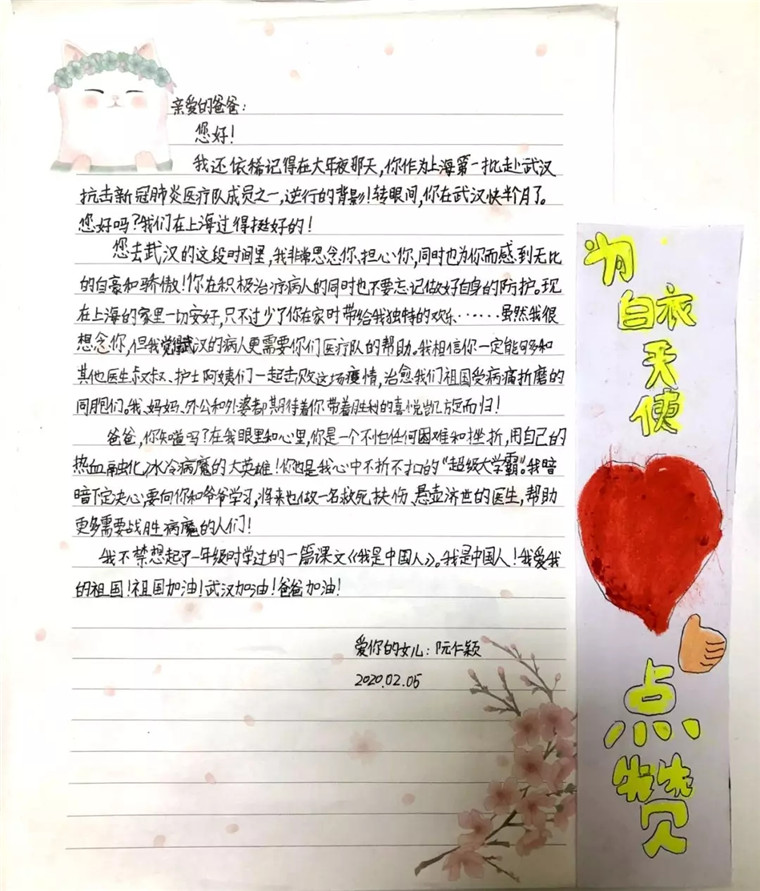 亲爱的爸爸:
您好!
我还依稀记得在大年夜那天,你作为上海第一批赴武汉
抗击新冠肺炎医疗队成员之一,逆行的背影!转眼间,你在武汉快半个月了。
您好吗?我们在上海过得挺好的!
您去武汉的这段时间里,我非常思念你、担心你,同时也为你而感到无比
的自豪和骄傲!你在积极治疗病人的同时也不要忘记做好自身的防护。现
在上海的家里一切安好,只不过少了你在家时带给我独特的欢乐……虽然我很
想念你,但我觉得武汉的病人更需要你们医疗队的帮助。我相信你一定能够和
其他医生叔叔、护士阿姨们一起击败这场疫情,治愈我们祖国受病痛折磨的
同胞们。我、妈妈、外公和外婆都期待着你带着胜利的喜悦凯旋而归!
爸爸,你知道吗?在我眼里和心里,你是一个不怕任何困难和挫折,用自己的
热血融化冰冷病魔的大英雄!你也是我心中不折不扣的“超级大学霸”。我暗
暗下定决心,要向你和爷爷学习,将来也做一名救死扶伤、悬壶济世的医生,帮助
更多需要战胜病魔的人们!
我不禁想起了一年级时学过的一篇课文《我是中国人》。我是中国人!我爱我
的祖国!祖国加油!武汉加油!爸爸加油!
爱你的女儿:阮仁颖
2020.02.05
为
白衣
天
使
点
赞